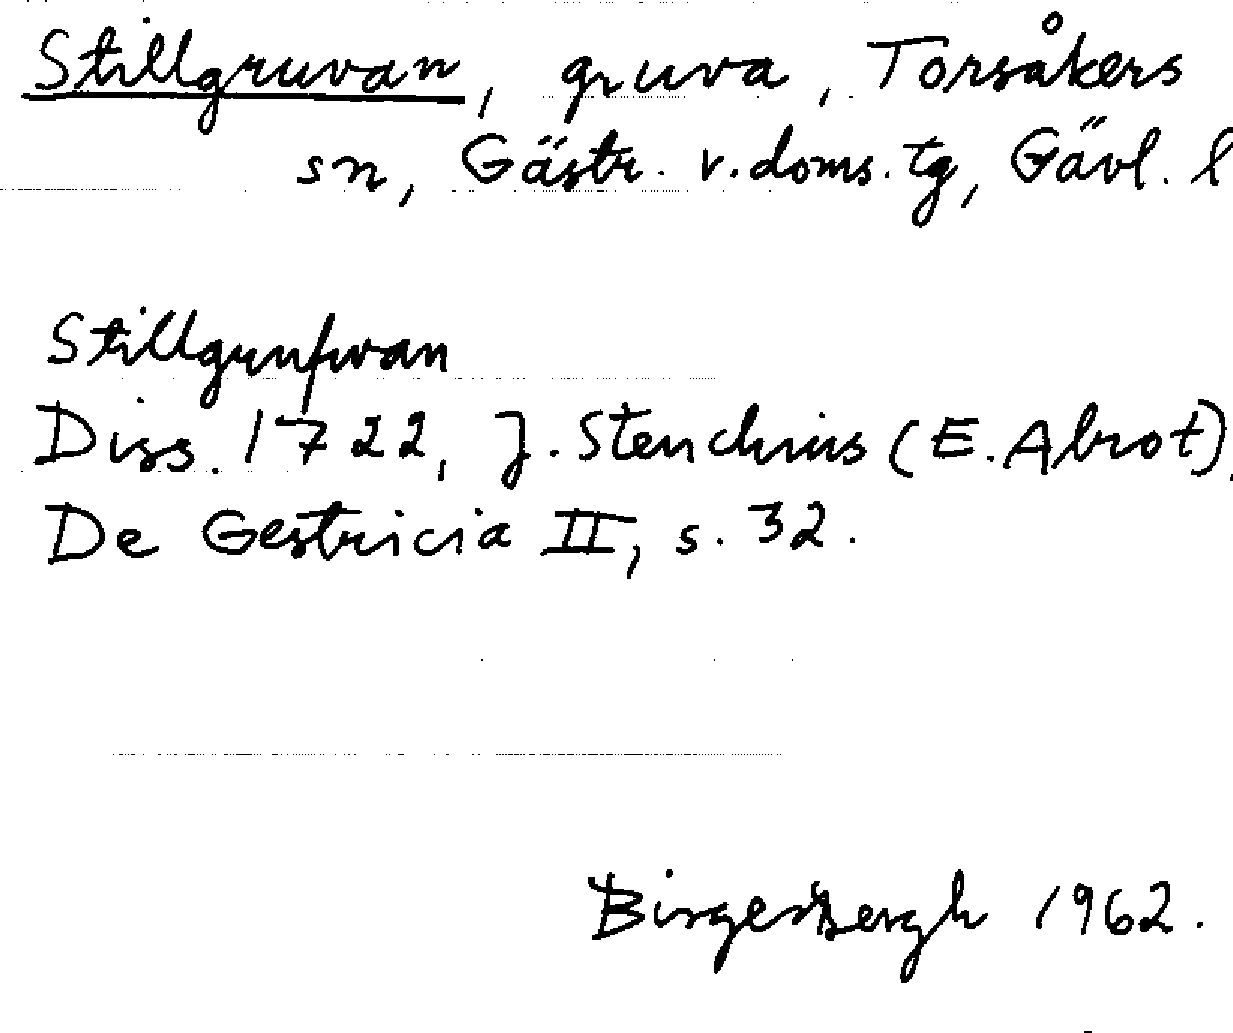 Stillgruvan, gruva, Torsåkers
sn, Gästr. v. doms. tg, Gävl. l
Stillgrufwan
Diss. 1722, J. Stenchius (E. Abrot),
De Gestricia II, s. 32.
Birger Bergh 1962.